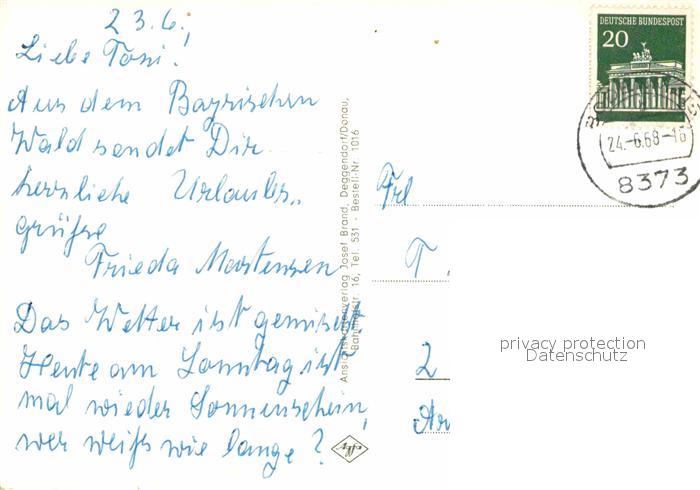 23.6.,
Liebe Toni!
Aus dem Bayrischen
Wald sendet Dir
herrliche Urlaubs-
grüße
Frieda Martensen
Das Wetter ist gemischt
Heute am Sonntag ist
mal wieder Sonnenschein,
wer weiß wie lange?
Ansichtskartenverlag Josef Brand, Deggendorf/Donau,
Bahnhofstr. 16, Tel. 531 - Bestell-Nr. 1016
Agfa
DEUTSCHE BUNDESPOST
20
24.-6.68-16
8373
Frl
T.
2
privacy protection
Datenschutz